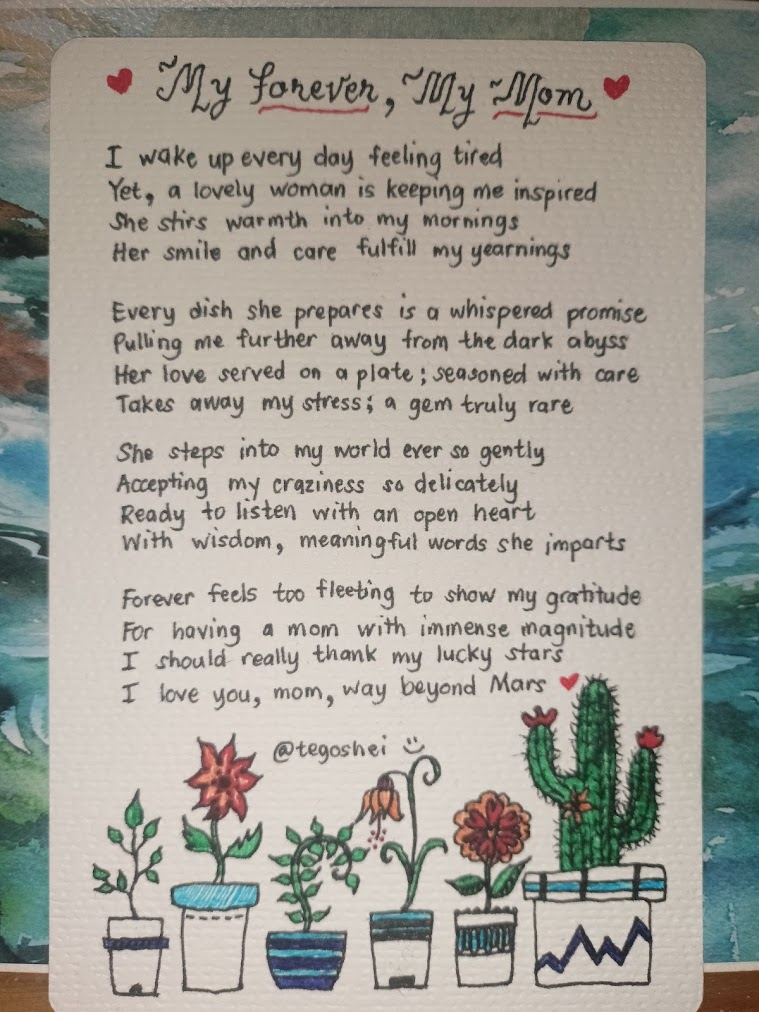 My forever, My Mom
I wake up every day feeling tired
Yet, a lovely woman is keeping me inspired
She stirs warmth into my mornings
Her smile and care fulfill my yearnings
Every dish she prepares is a whispered promise
Pulling me further away from the dark abyss
Her love served on a plate; seasoned with care
Takes away my stress; a gem truly rare
She steps into my world ever so gently
Accepting my craziness so delicately
Ready to listen with an open heart
With wisdom, meaningful words she imparts
Forever feels too fleeting to show my gratitude
For having a mom with immense magnitude
I should really thank my lucky stars
I love you, mom, way beyond Mars
@tegoshei